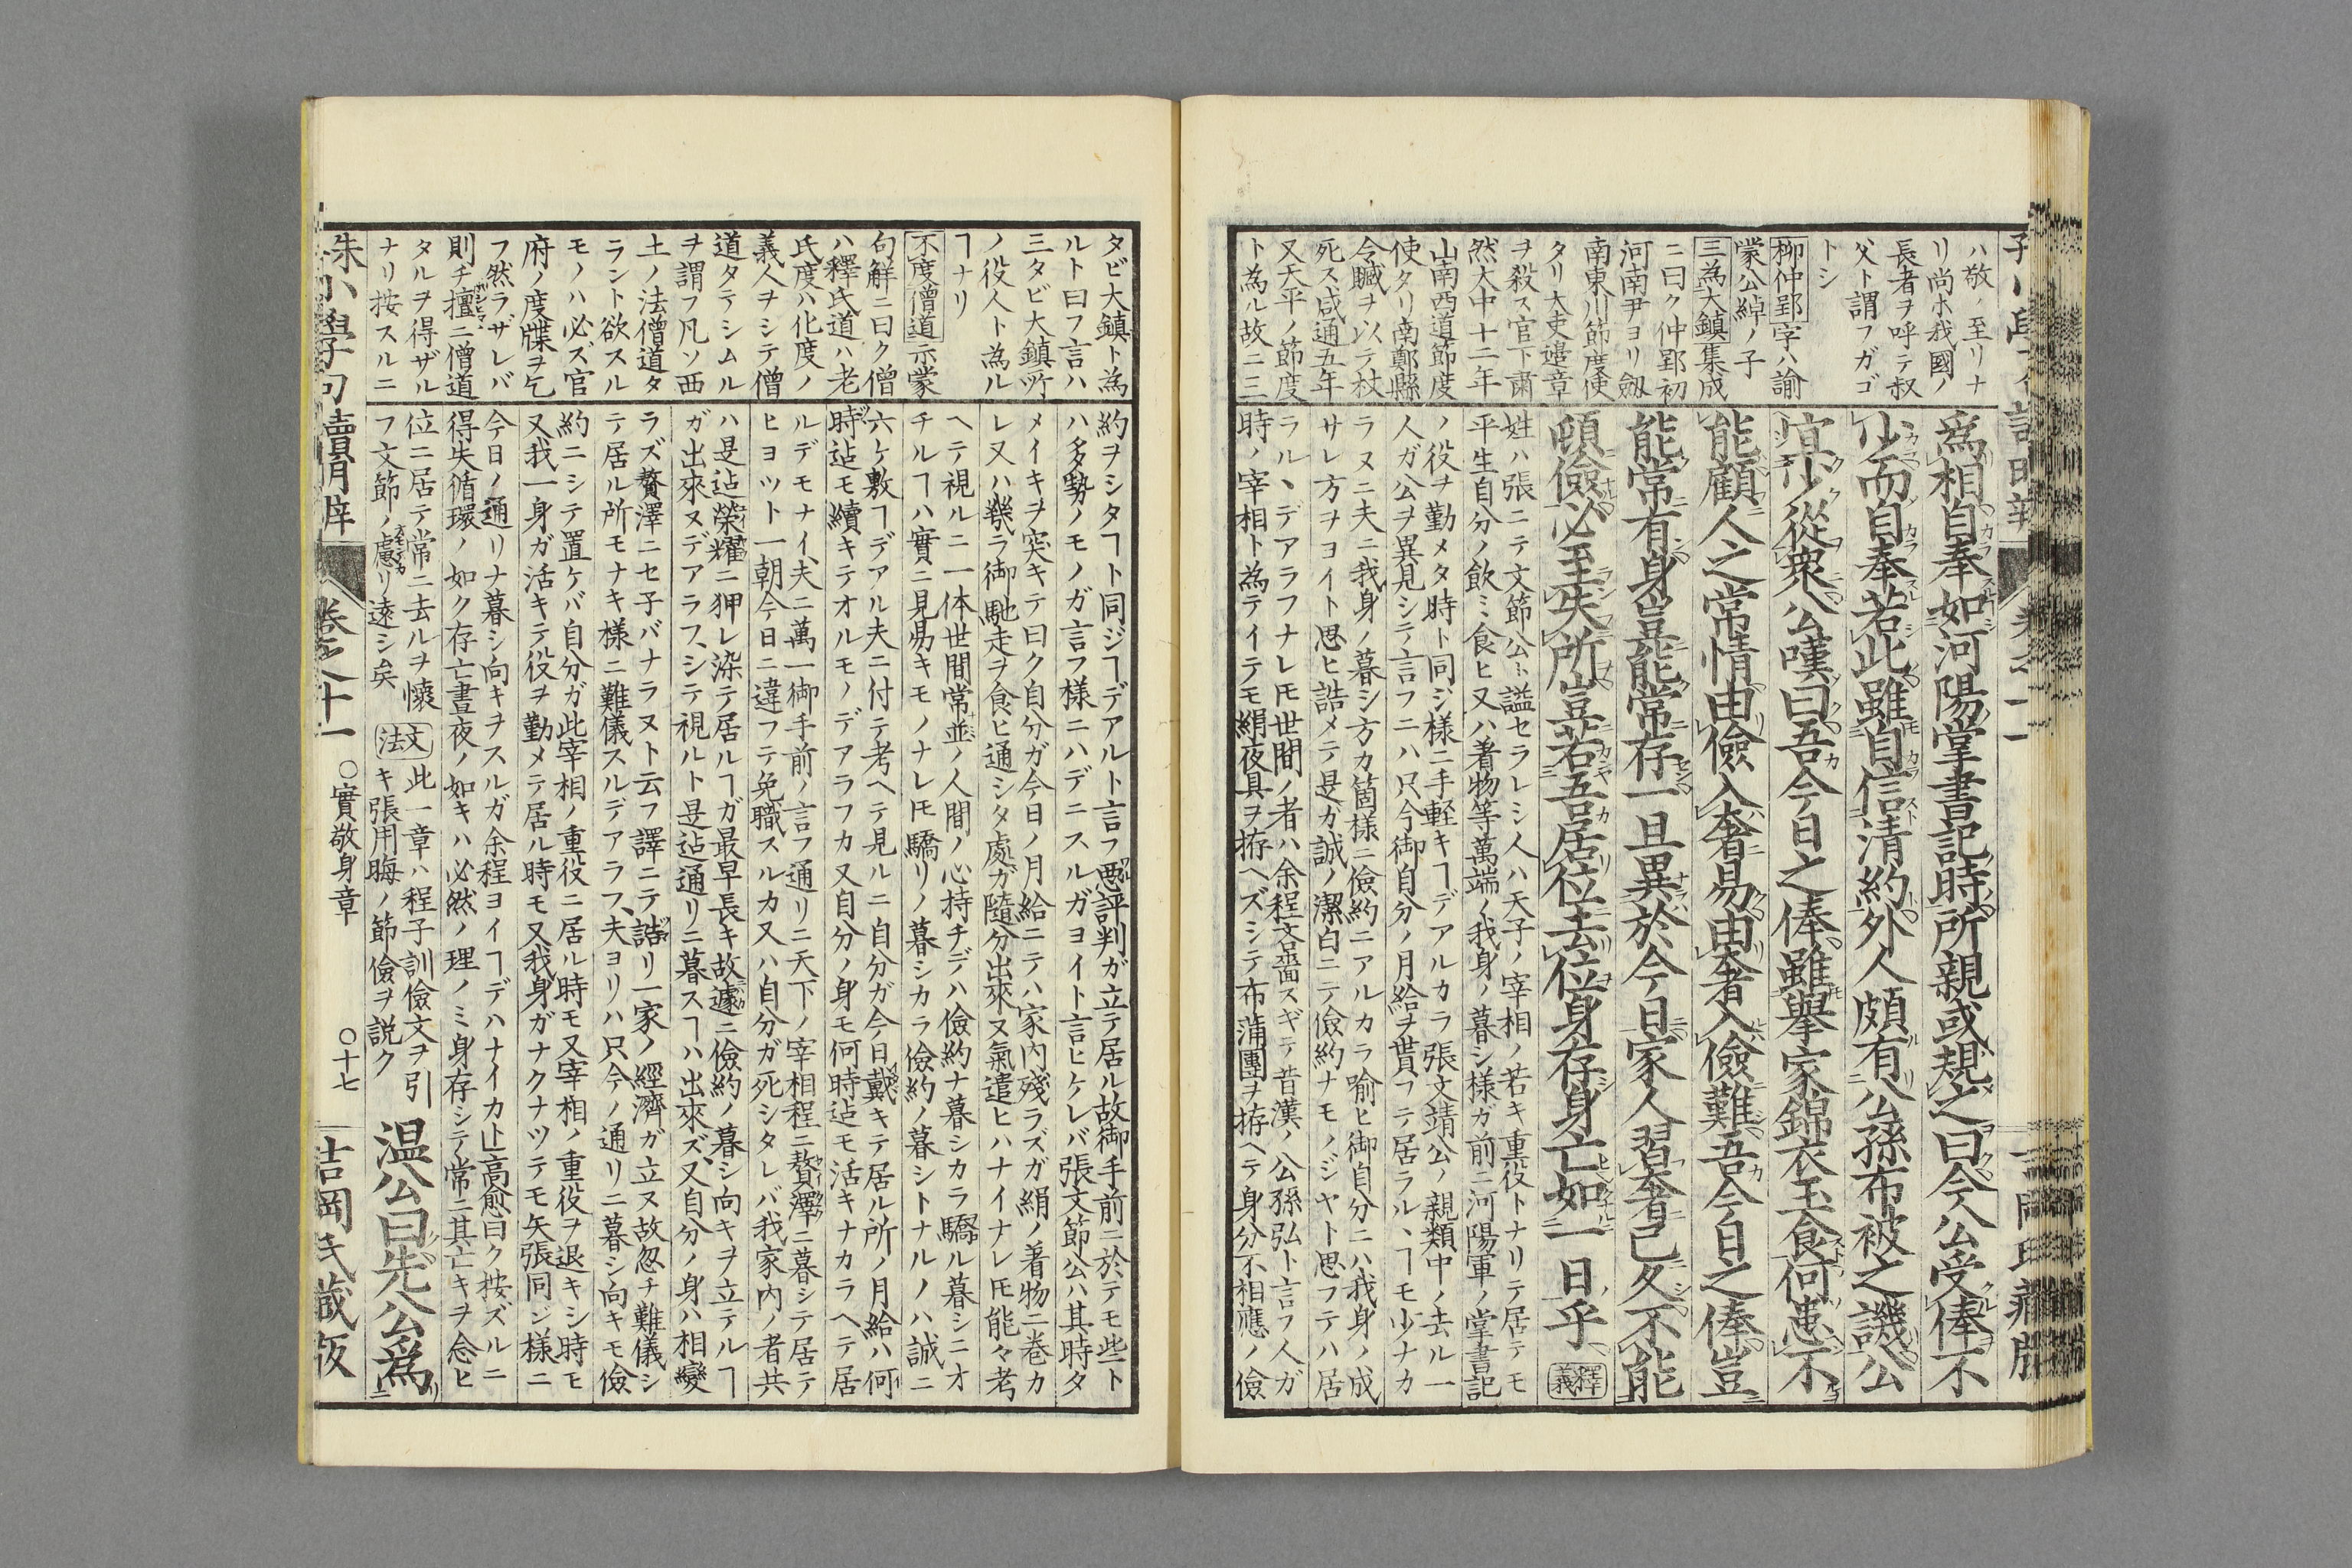 ハ敬ノ至リナ
リ尚ホ我國ノ
長者ヲ呼テ叔
父ト謂フガゴ
トシ
柳仲郢字ハ諭
蒙公綽ノ子
三為大鎮集成
ニ曰ク仲郢初
河南尹ヨリ劔
南東川節度使
タリ大吏邊章
ヲ殺ス官下肅
然大中十二年
山南西道節度
使タリ南鄭縣
令贓ヲ以テ杖
死ス咸通五年
又天平ノ節度
ト為ル故ニ三
爲相自奉如河陽掌書記時所親或規之曰今公受俸不
少而自奉若此雖自信清約外人頗有公孫布被之譏公
宜少從衆公嘆曰吾今日之俸雖擧家錦衣玉食何患不
能顧人之常情由儉入奢易由奢入儉難吾今日之俸豈
能常有身豈能常存一旦異於今日家人習奢已久不能
頓儉必至失所豈若吾居位去位身存身亡如一日乎 釋義
姓ハ張ニテ文節公ト謚セラレシ人ハ天子ノ宰相ノ若キ重役トナリテ居テモ
平生自分ノ飲ミ食ヒ又ハ着物等萬端ノ我身ノ暮シ様ガ前ニ河陽軍ノ掌書記
ノ役ヲ勤メタ時ト同ジ様ニ手軽キヿデアルカラ張文靖公ノ親類中ノ去ル一
人ガ公ヲ異見シテ言フニハ只今御自分ノ月給ヲ貰フテ居ラルヽヿモ少ナカ
ラヌニ夫ニ我身ノ暮シ方カ箇様ニ儉約ニアルカラ喻ヒ御自分ニハ我身ノ成
サレ方ヲヨイト思ヒ誥メテ是ガ誠ノ潔白ニテ儉約ナモノジヤト思フテハ居
ラルヽデアラフナレモ世間ノ者ハ余程文嗇スギテ昔漢ノ公孫弘ト言フ人ガ
時ノ宰相ト為テイテモ絹夜具ヲ拵ヘズシテ布蒲團ヲ拵ヘテ身分不相應ノ儉
タビ大鎮ト為
ルト曰フ言ハ
三タビ大鎮所
ノ役人ト為ル
ヿナリ
不度僧道示蒙
句解ニ曰ク僧
ハ釋氏道ハ老
氏度ハ化度ノ
義人ヲシテ僧
道タテシムル
ヲ謂フ凡ソ西
土ノ法僧道タ
ラント欲スル
モノハ必ズ官
府ノ度牒ヲ乞
フ然ラザレバ
則チ擅ニ僧道
タルヲ得ザル
ナリ按スルニ
約ヲシタヿト同ジヿデアルト言フ悪評判ガ立テ居ル故御手前ニ於テモ些ト
ハ多勢ノモノガ言フ様ニハデニスルガヨイト言ヒケレバ張文節公ハ其時タ
メイキヲ突キテ曰ク自分ガ今日ノ月給ニテハ家内殘ラズガ絹ノ着物ニ巻カ
レ又ハ幾ラ御馳走ヲ食ヒ通シタ處ガ隨分出來ヌ氣遣ヒハナイナレモ能々考
ヘテ視ルニ一体世間常並ノ人間ノ心持チデハ儉約ナ暮シカラ驕ル暮シニオ
チルヿハ實ニ見易キモノナレモ驕リノ暮シカラ儉約ノ暮シトナルノハ誠ニ
六ケ敷ヿデアル夫ニ付テ考ヘテ見ルニ自分ガ今日戴キテ居ル所ノ月給ハ何
時迠モ續キテオルモノデアラフカ又自分ノ身モ何時迠モ活キナカラヘテ居
ルデモナイ、夫ニ萬一御手前ノ言フ通リニ天下ノ宰相程ニ贅澤ニ暮シテ居テ
ヒヨツト一朝今日ニ違フテ免職スルカ又ハ自分ガ死シタレバ我家内ノ者共
ハ是迠榮耀ニ狎レ染テ居ルヿガ最早長キ故遽ニ儉約ノ暮シ向キヲ立テルヿ
ガ出來ヌデアラフ、シテ視ルト是迠通リニ暮スヿハ出來ズ、又自分ノ身ハ相變
ラズ贅澤ニセ子バナラヌト云フ譯ニテ詰リ一家ノ經濟ガ立ヌ故忽チ難儀シ
テ居ル所モナキ様ニ難儀スルデアラフ、夫ヨリハ只今ノ通リニ暮シ向キモ儉
約ニシテ置ケバ自分ガ此宰相ノ重役ニ居ル時モ又宰相ノ重役ヲ退キシ時モ
又我一身ガ活キテ役ヲ勤メテ居ル時モ又我身ガナクナツテモ矢張同ジ様ニ
今日ノ通リナ暮シ向キヲスルガ余程ヨイヿデハナイカト高愈曰ク按ズルニ
得失循環ノ如ク存亡晝夜ノ如キハ必然ノ理ノミ身存シテ常ニ其亡キヲ念ヒ
位ニ居テ常ニ去ルヲ懷フ文節ノ慮リ遠シ矣 文法 此一章ハ程子訓儉文ヲ引キ張用晦ノ節儉ヲ説ク 温公曰先公爲
朱小學句讀門牟 卷之十一 ○實敬身章 ○十七 吉岡氏藏版